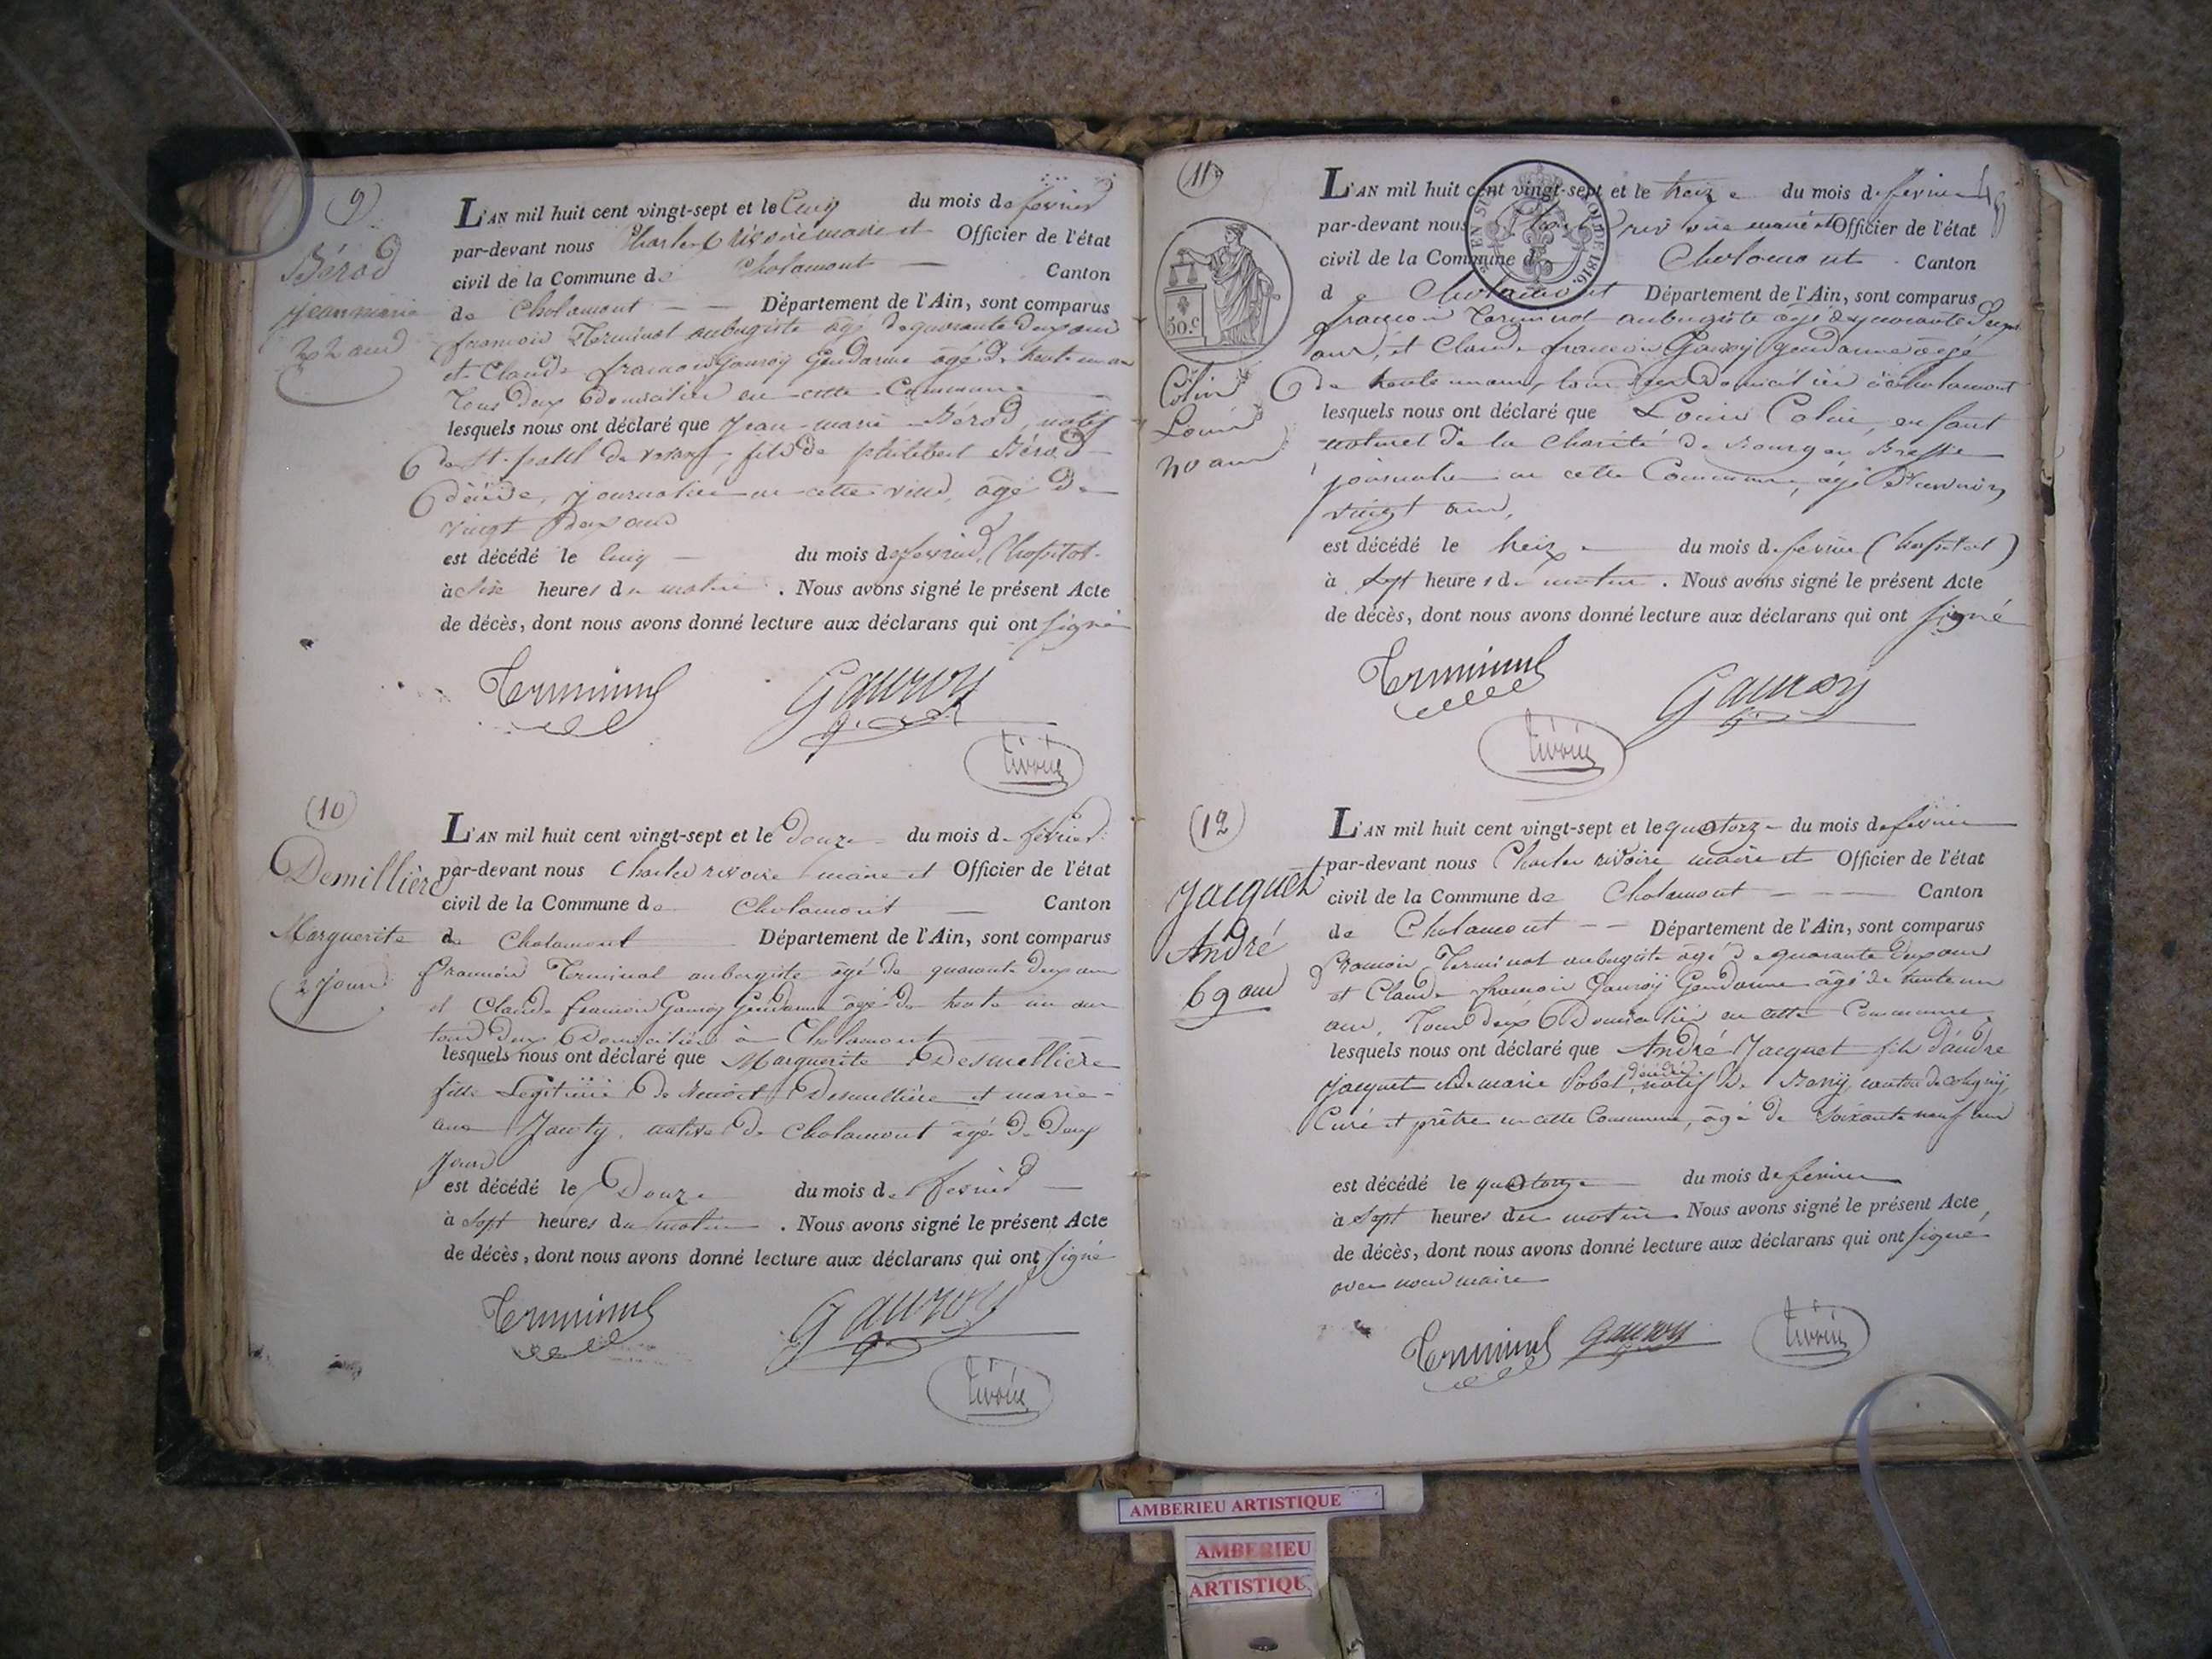 9
Bérod
jean marie
22 ans
L'AN mil huit cent vingt-sept et le Cinq du mois de fevrier
par-devant nous Charles rivoire maire et Officier de l'état
civil de la Commune de Chalamont Canton
de Chalamont Département de l'Ain, sont comparus
francois Terminal aubergiste âgé de quarante deux ans
et Claude francois Gauroy Gendarme âgé de trente un an
Tous deux Domicilies en cette Commune
lesquels nous ont déclaré que Jean-marie Bérod, natif
de St. paul de varax, fils de philibert Bérod
décédé, journalier en cette ville, âgé de
vingt deux ans
est décédé le Cinq du mois de fevrier, (hopital
à six heures du matin. Nous avons signé le présent Acte
de décès, dont nous avons donné lecture aux déclarans qui ont signé
Terminal Gauroy
rivoire
(10)
Demillière
Marguerite
2 jours
L'AN mil huit cent vingt-sept et le Douze du mois de fevrier
par-devant nous Charles rivoire maire et Officier de l'état
civil de la Commune de Chalamont Canton
de Chalamont Département de l'Ain, sont comparus
francois Terminal aubergiste âgé de quarante deux ans
et Claude francois Gauroy Gendarme âgé de trente un ans
tous deux Domiciliés à Chalamont
lesquels nous ont déclaré que Marguerite Desmellière
fille Legitime de Benoit Desmellière et marie-
anne native de Chalamont âgé de Deux
Jours
est décédé le Douze du mois de fevrier
à sept heures du matin. Nous avons signé le présent Acte
de décès, dont nous avons donné lecture aux déclarans qui ont signé
Terminal Gauroy
rivoire
11
48
EN SUS LOI DE 1816.
50.c
Colin
Louis
20 ans
L'AN mil huit cent vingt-sept et le treize du mois de fevrier
par-devant nous Charles rivoire maire et Officier de l'état
civil de la Commune de Chalamont Canton
de Chalamont Département de l'Ain, sont comparus
francois Terminal aubergiste âgé de quarante deux
ans, et Claude francois Gauroy gendarme âgé
de trente un ans, tous deux Domiciliés à Chalamont
lesquels nous ont déclaré que Louis Colin, enfant
naturel de la Charité de Bourg en Bresse
journalier en cette Commune, âgé d'environ
vingt ans,
est décédé le treize du mois de fevrier (hopital)
à sept heures du matin. Nous avons signé le présent Acte
de décès, dont nous avons donné lecture aux déclarans qui ont signé
Terminal Gauroy
rivoire
(12)
Jacquet
André
69 ans
L'AN mil huit cent vingt-sept et le quatorze du mois de fevrier
par-devant nous Charles rivoire maire et Officier de l'état
civil de la Commune de Chalamont Canton
de Chalamont Département de l'Ain, sont comparus
francois Terminal aubergiste âgé de quarante deux ans
et Claude francois Gauroy Gendarme âgé de trente un
ans, Tous deux Domiciliés en cette Commune
lesquels nous ont déclaré que André Jacquet fils d'andré
Jacquet et de marie Pobel, décédés natif de canton de coligny,
Curé et prêtre en cette Commune, âgé de Soixante neuf ans
est décédé le quatorze du mois de fevrier
à Sept heures du matin Nous avons signé le présent Acte
de décès, dont nous avons donné lecture aux déclarans qui ont signé
avec nous maire
Terminal Gauroy rivoire
AMBERIEU ARTISTIQUE
AMBERIEU
ARTISTIQU